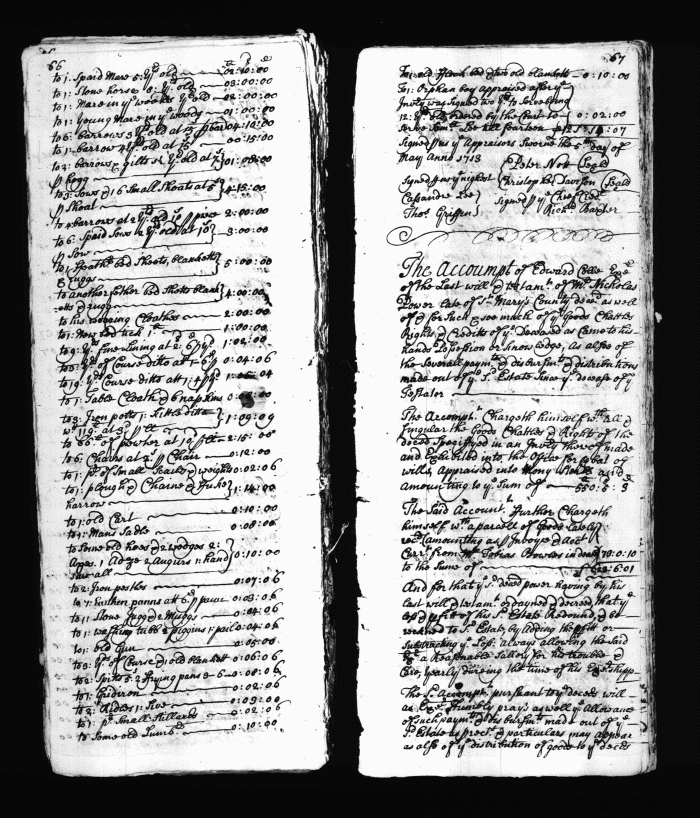 66
to 1: Spaid Mare 5: yrs old 02:10:00
to 1: Stone horse 8: yrs old 03:00:00
to 1: Mare in ye woods 4: yrs old 02:00:00
to 1: Young Mare in ye woods 01:00:00
to 6: barrows 3 yrs old at 15s pr bar 04:10:00
to 1: barrow 4 yrs old at 15s 00:15:00
to 2: barrows & gilts 2 yrs old at
pr hogg 01:08:00
to 3: Sows & 16 Small Shoats at
pr Shoat 4:15:00
to 4 barrows at 2 yrs old 10s pr pice 2:00:00
to 6: Spaid Sows 2 yrs old at 10s
pr Sow 3:00:00
to 1: Feathr bed Sheets, blankett
& rugg 5:00:00
to another fether bed Shets blank
etts & rugg 4:00:00
to his wearing Cloathes 2:00:00
to 1: New bed tick 1:00:00
to 9: yds fine Lining at 2s: 6d pr yd 1:02:00
to 3: yds of Course ditto at 1:6 0:04:06
to 19: yds Course ditto at 1:4 pr yd
to 1: Table Cloath & 6 napkins
to 3: Iron potts 1: Kittle ditto
wt 119 at 3d pr ll 1:09:09
to 66: ll of pewter at 10d pr ll 2:15:00
to 6: Chairs at 2s pr Chair 0:12:00
to 1: pr of Small Scailes & weights 0:02:06
to 1: plough & Chaine &
harrow 1:14:00
to 1: old Cart 0:10:00
to 1: Mans Sadle 0:08:00
to Some old hoes & 2 wedges 2:
Axes: 1 Adze 2 Augurs 1: hand
Saw all 0:10:00
to 2: Iron pestles 0:07:06
to 7: Earthen panns at 6d pr pance 0:03:06
to 11: Stone Juggs & Muggs 0:04:06
to 1: washing tubb 2 piggins 1: pail 0:04:06
to 1: old Gun 0:05:00
to 3: yds of Curse & 1 old blanket 0:06:06
to 2: Spits & 2 frying pans 6s 0:08:06
to 1: Gridiron 0:02:06
to 2: Aldies 1: Hoe 0:09:00
to 1: pr Small Stillards 0:02:06
to Some old Lumbr 0:10:00
67
To 1: old flock bed & two old blanketts 0:10:00
To 1: Orphan boy appraised after ye
Invty was signed two yrs to Serve being
12: yrs old ordered by the Court to 0:02:00
Serve Some Lee till fourteen 121:14:07
Signed Us ye Appraisors Sworne the 5th day of
May Anno 1713
Peter Nott Seald
Signed us ye nighest Christopher Davison Seald
Cassandra Lee Signed ye Chief Cred
Thos Griffen Richd Baxter
The Accoumpt of Edward Cole Exr
of the Last will & testamt of Mr Nicholas
Power late of St Marys County decd as well
of & for Such & soe much of ye Goods Chattles
Rights & Credits of ye deceased as Came to his
hands Possession or knowledge, As alsoe of
the Severall paymts & disbursmts & distributions
made out of ye Sd Estate Since ye decease of ye
Testator
The Accompt Chargeth himself wth all &
Singular the Goods Chattles & Rights of the
deced Specifyed in an Invty thereof made
and Exhibited into the Office for probat of
wills, Appraised into Mony which
amounting to ye Sum of 550:5:3
The Said Accountt further Chargeth
himself wth a parcell of Goods
recd amounting as Invoyce & Acct
Currt from Mr Tobias Bowles in 70:0:10
to the Sume of
And for that ye Sd deced power having by his
last will & testamt ordayned & decreed that ye
loss & profitt of his Sd Estate Redound & be
returned to Sd Estate by Adding the profitt or
Substracting ye loss always allowing the Said
Exr a Reasonable Sallery for his trouble &
Care, yearly during the time of his Exrshipp
The Sd Accompt pursuant to ye deceds will
as Exr humbly prays as well ye Allowance
of such paymts & disbursmts made out of ye
Sd Estate as precist & particulars may appear
as also of ye distribution of goods to ye deceds